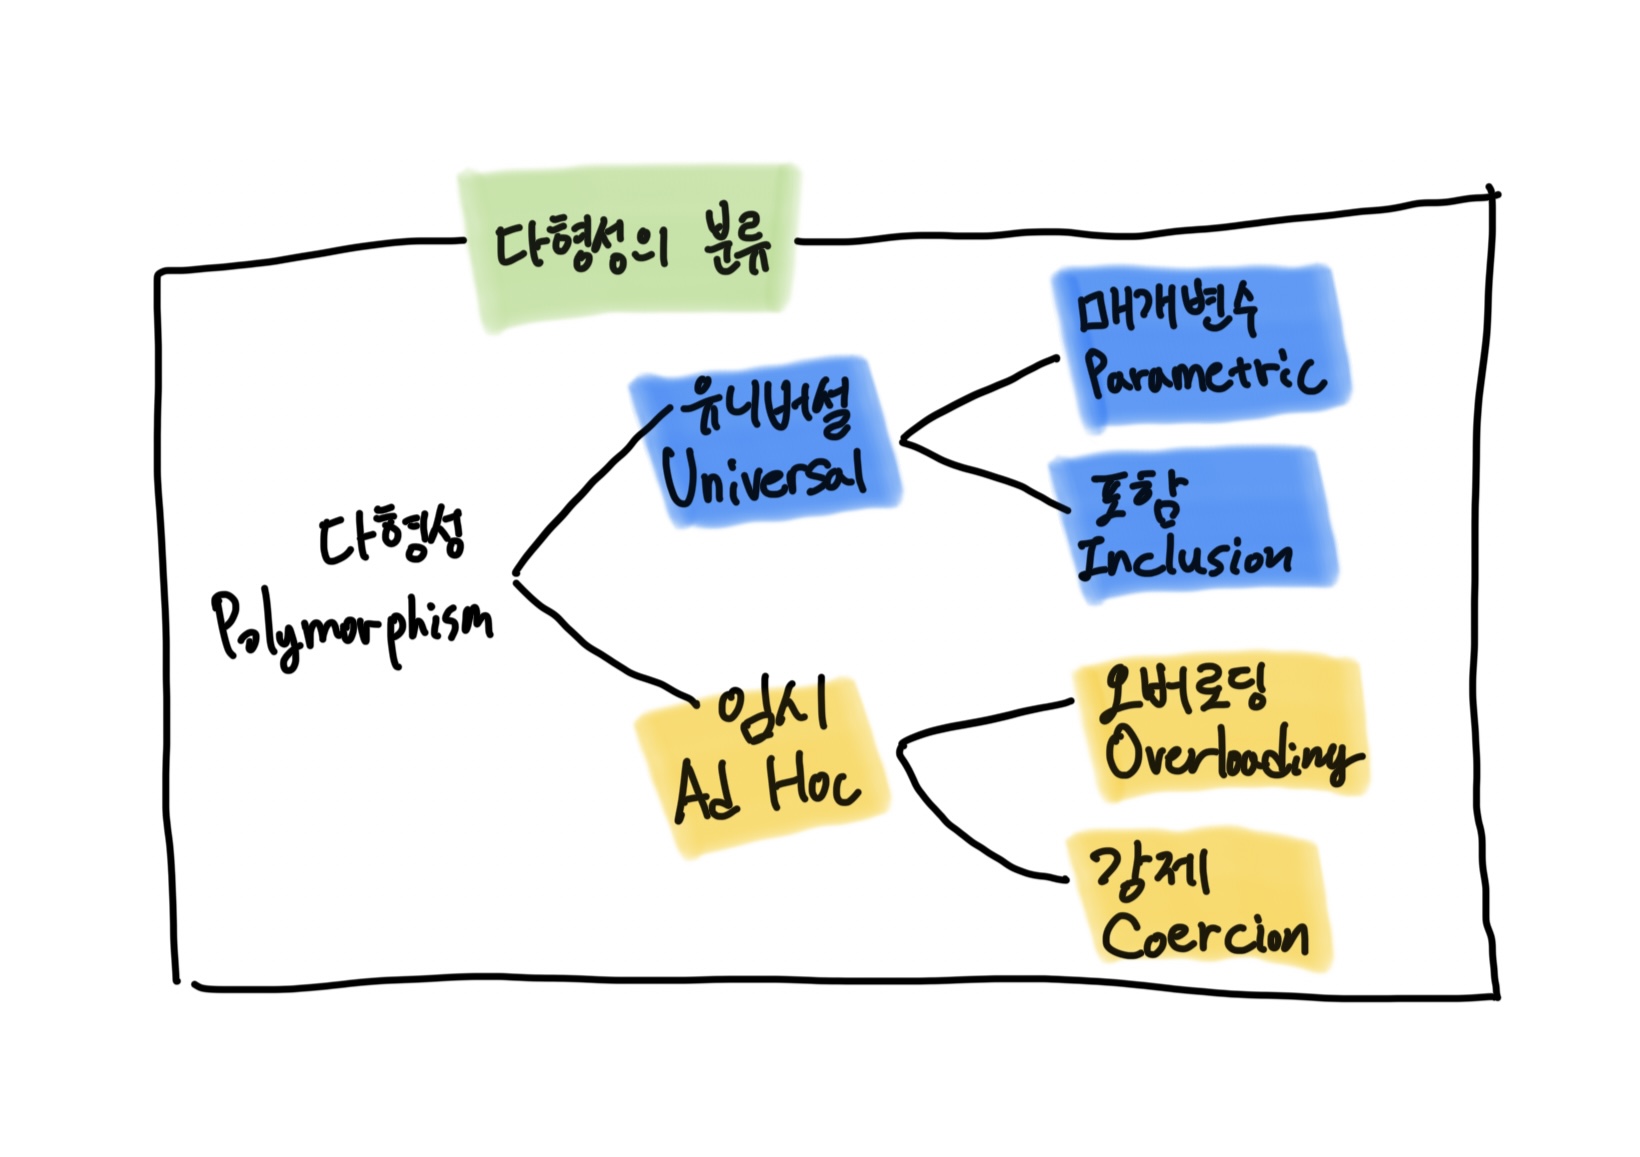 다형성의 분류
다형성
Polymorphism
유니버설
Universal
매개변수
Parametric
포함
Inclusion
임시
Ad Hoc
오버로딩
Overloading
강제
Coercion